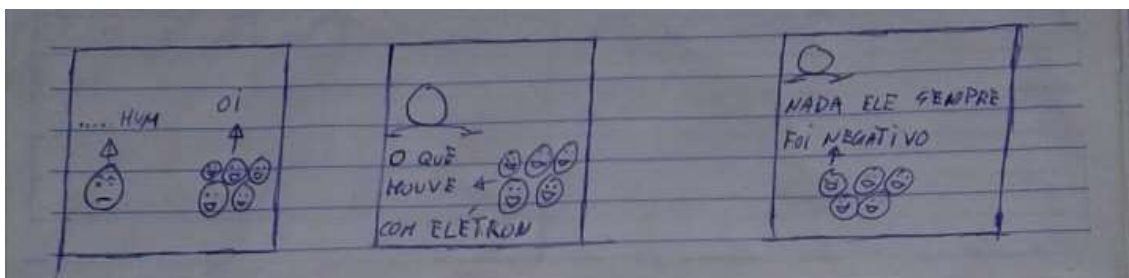 .... HUM
OI
O QUÊ
HOUVE
COM ELÉTRON
NADA ELE SEMPRE
FOI NEGATIVO